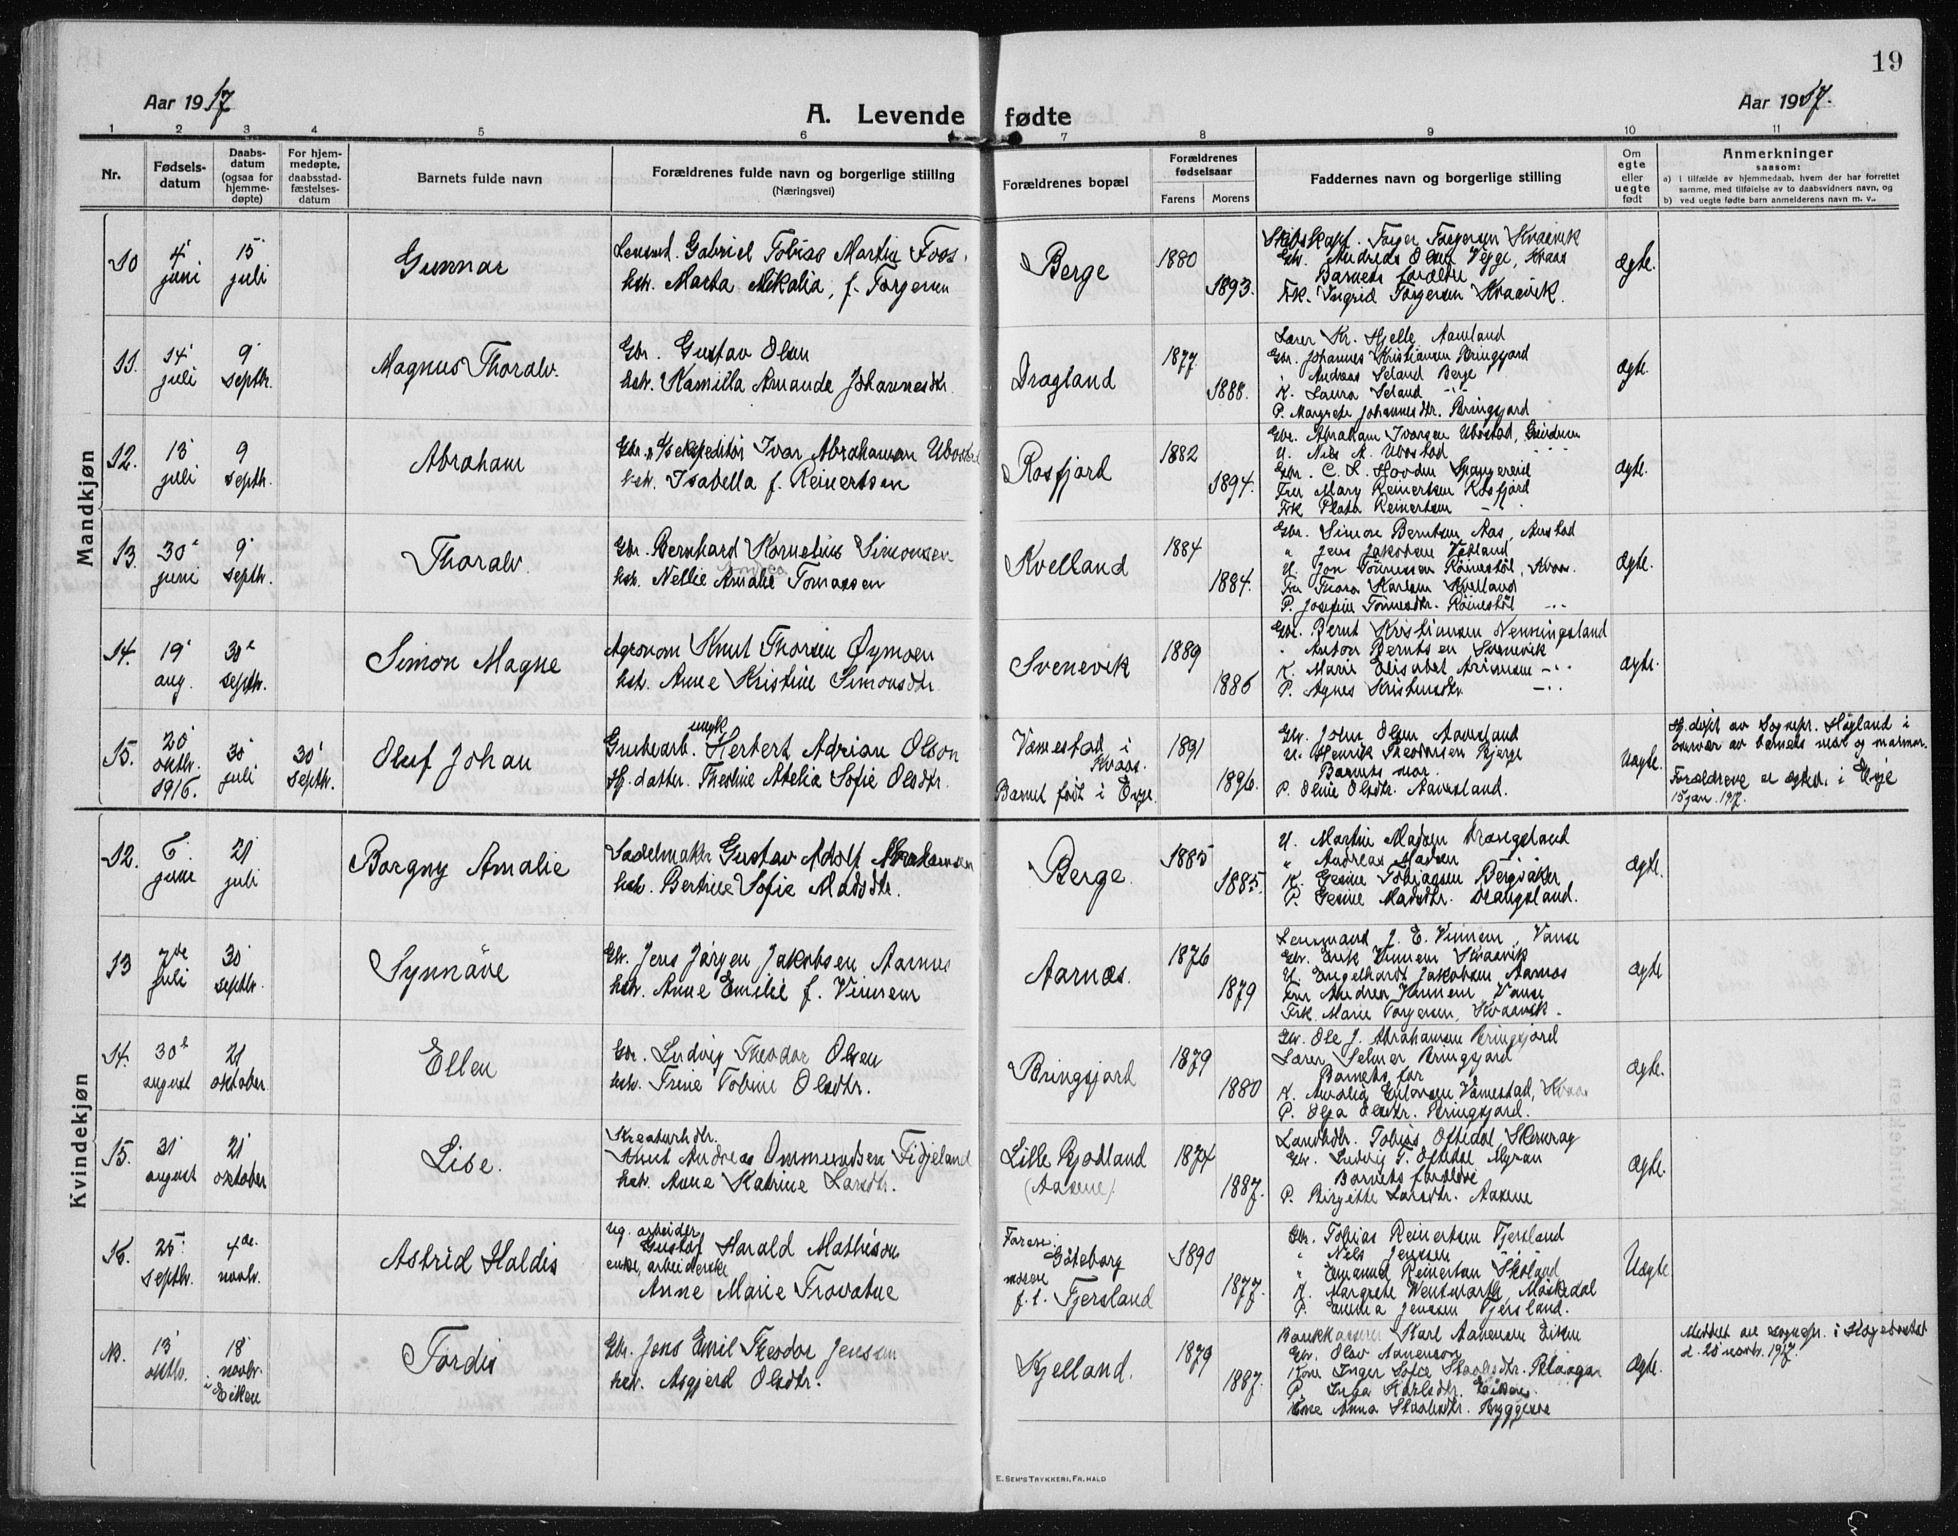 19
Aar 1917
A. Levende fødte
Aar 1917.
1 2 3 4 5 6 7 8 9 10 11
Nr.
Fødsels-
datum
Daabs-
datum
(ogsaa for
hjemme-
døpte)
For hjem-
medøpte,
daabsstad-
fæstelses-
datum
Barnets fulde navn
Forældrenes fulde navn og borgerlige stilling
(Næringsvei)
Forældrenes bopæl
Forældrenes
fødselsaar
Farens Morens
Faddernes navn og borgerlige stilling
Om
egte
eller
uegte
født
Anmerkninger
saasom:
a) i tilfælde av hjemmedaab, hvem der har forrettet
samme, med tilføielse av to daabsvidners navn, og
b) ved uegte fødte barn anmelderens navn m. v..
Mandkjøn
10
4'
juni
15'
juli
Gunnar
Lensmd. Gabriel Tobias Martin Foss.
hst. Marta Mikalia, f. Torgersen
Berge
1880
1893.
Skibskapt. Torger Torgersen Kvaavik
Gbr. Andreas Olsen Vegge, Kvaas
Barnets forældre
Frk. Ingrid Torgersen Kvaavik.
ægte.
11.
14'
juli
9'
septbr.
Magnus Thoralv.
Gbr. Gustav Olsen
hst. Kamilla Amande Johannesdtr.
Dragland
1877
1888.
Lærer Kr. Hjelle Aamland
Gbr. Johannes Kristiansen Bringsjord
" Andreas Seland Berge
K. Laura Seland - " -
P. Margrete Johannesdtr. Bringsjord
ægte.
12.
13'
juli
9
septbr.
Abraham
Gbr. & expeditør Ivar Abrahamsen Ubostad
hst. Isabella f. Reinertsen
Rosfjord
1882
1894.
Gbr. Abraham Ivarsen Ubostad,
U. Nils A. Ubostad
Gbr. C. L. Hovden Spangereid
Fru Mary Reinertsen Rosfjord
Frk Plata Reinertsen - " -
ægte.
13.
30'
juni
9'
septbr.
Thoralv
Gbr. Bernhard Kornelius Simonsen
Andrea
hst. Nellie Amalie Tomassen
Kvelland
1884
1884.
Gbr. Simon Berntsen Aas, Austad
" Jens Jakobsen Vatland
U. Jon Tønnessen Röinestöl, Kvaas.
Fru Thora Karlsen Kvelland
P. Josefine Tönnesdtr. Röinestöl - " -
ægte.
14.
19'
aug.
30'
septbr.
Simon Magne
Agronom Knut Thorsen Øymoen
hst. Anne Kristine Simonsdtr.
Svenevik
1889
1886
Gbr. Bernt Kristiansen Nenningsland
" Anton Berntsen Svenevik
K. Marie Elisabet Arimsen - " -
P. Agnes Kristensdtr. - " -
ægte.
15.
20'
oktbr.
1916.
30'
juli
30'
septbr.
Oluf Johan
ungk
Grubearb. Herbert Adrian Olson
Hj. datter. Thesline Atelia Sofie Olsdtr.
Vaamestad i
Kvaas.
Barnet født i Evje.
1891
1896.
Gbr. John Olsen Aavesland
U. Henrik Theodorsen Bjerge
Barnets mor.
P. Oline Olsdtr. Aavesland.
Uægte.
Hj. døpt av Sognepr. Högland i
overvær av barnets mor og mormor.
Forældrene er ægtev. i Evje
15 jan. 1917.
Kvindekjøn
12.
6'
june
21
juli
Borgny Amalie
Sadelmaker Gustav Adolf Abrahamsen
hst. Bertine Sofie Madsdtr.
Berge.
1885
1885.
U. Martin Madsen Drangsland
" Andreas Madsen - " -
K. Gesine Tobiassen Bergsaker
P. Gesine Madsdtr. Drangsland.
ægte.
13
7de
juli
30'
septbr.
Synnöve
Gbr. Jens Jörgen Jakobsen Aarnes
hst. Anne Emilie f. Vinnem
Aarnæs.
1876
1879
Lensmand J. E. Vinnem, Vanse
Gbr. Erik Vinnem Kvaavik
U. Engelhardt Jakobsen Aarnes
Fru Andrea Vinnem, Vanse
Frk. Marie Torgersen, Kvaavik.
ægte
14.
30'
august
21
oktober
Ellen
Gbr. Ludvig Theodor Olsen
hst. Trine Tobine Olsdtr.
Bringsjord
1879
1880
Gbr. Ole J. Abrahamsen Bringsjord
Lærer Selmer Bringsjord
Barnets far
K. Amalie Gulovsen Vaamestad, Kvaas
P. Olga Olsdtr. Bringsjord.
ægte.
15.
31'
august
21'
oktober
Lise.
Kreaturhdlr.
Knut Andreas Ommundsen Fidjeland
hst. Anne Katrine Larsdtr.
Lille Rjodland
(Aasene)
1874
1887.
Landhdlr. Tobias Oftedal, Skeivrag
Gbr. Ludvig T. Oftedal Myran
Barnets forældre
P. Birgitte Larsdtr. Aasene
ægte.
16.
25'
septbr.
4de
novbr.
Astrid Haldis
ug. arbeider
Gustaf Harald Mathison
enke, arbeiderske
Anne Marie Trovatne
Faren:
Göteborg
moren
f. t. Fjersland
1890
1877.
Gbr. Tobias Reinertsen Fjersland
" Nils Jenssen - " -
" Emanuel Reinertsen Skoland
K. Margrete Wentwarth, Moskedal
P. Emma Jenssen Fjersland.
Uægte
N.
13'
oktbr.
18'
novbr.
i Eiken
Tordis
Gbr. Jens Emil Theodor Jenssen
hst. Asgjerd Olsdtr.
Kjelland.
1879
1887.
Bankkasserer Karl Aanensen Eiken
Gbr. Olav Aanenson
Kone Inger Sofie
P. Inga Karlsdtr. Eiken.
Kone Anna
ægte.
Meddelt av sognepr. i Hægebostad
d. 20 novbr. 1917.
E. SEM'S TRYKKERI, FR. HALD